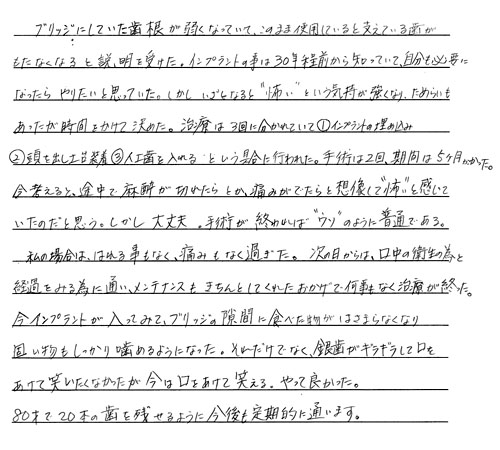 ブリッジにしていた歯根が弱くなっていて、このまま使用していると支えている歯が
もたなくなると説明を受けた。インプラントの事は30年程前から知っていて、自分も必要に
なったらやりたいと思っていた。しかしいざとなると"怖い"という気持が強くなり、ためらいも
あったが時間をかけて決めた。治療は3回に分かれていて①インプラントの埋め込み
②頭を出し土台装着③人工歯を入れる という具合に行われた。手術は2回、期間は5ヶ月かかった。
今考えると、途中で麻酔が切れたらとか、痛みがでたらと想像して"怖"を感じて
いたのだと思う。しかし大丈夫。手術が終われば"ウソ"のように普通である。
私の場合は、はれる事もなく、痛みもなく過ぎた。次の日からは、口中の衛生の為と
経過をみる為に通い、メンテナンスもきちんとしてくれたおかげで何事もなく治療が終った。
今インプラントが入ってみて、ブリッジの隙間に食べた物がはさまらなくなり
固い物もしっかり噛めるようになった。それだけでなく、銀歯がギラギラして口を
あけて笑いたくなかったが今は口をあけて笑える。やって良かった。
80才で20本の歯を残せるように今後も定期的に通います。